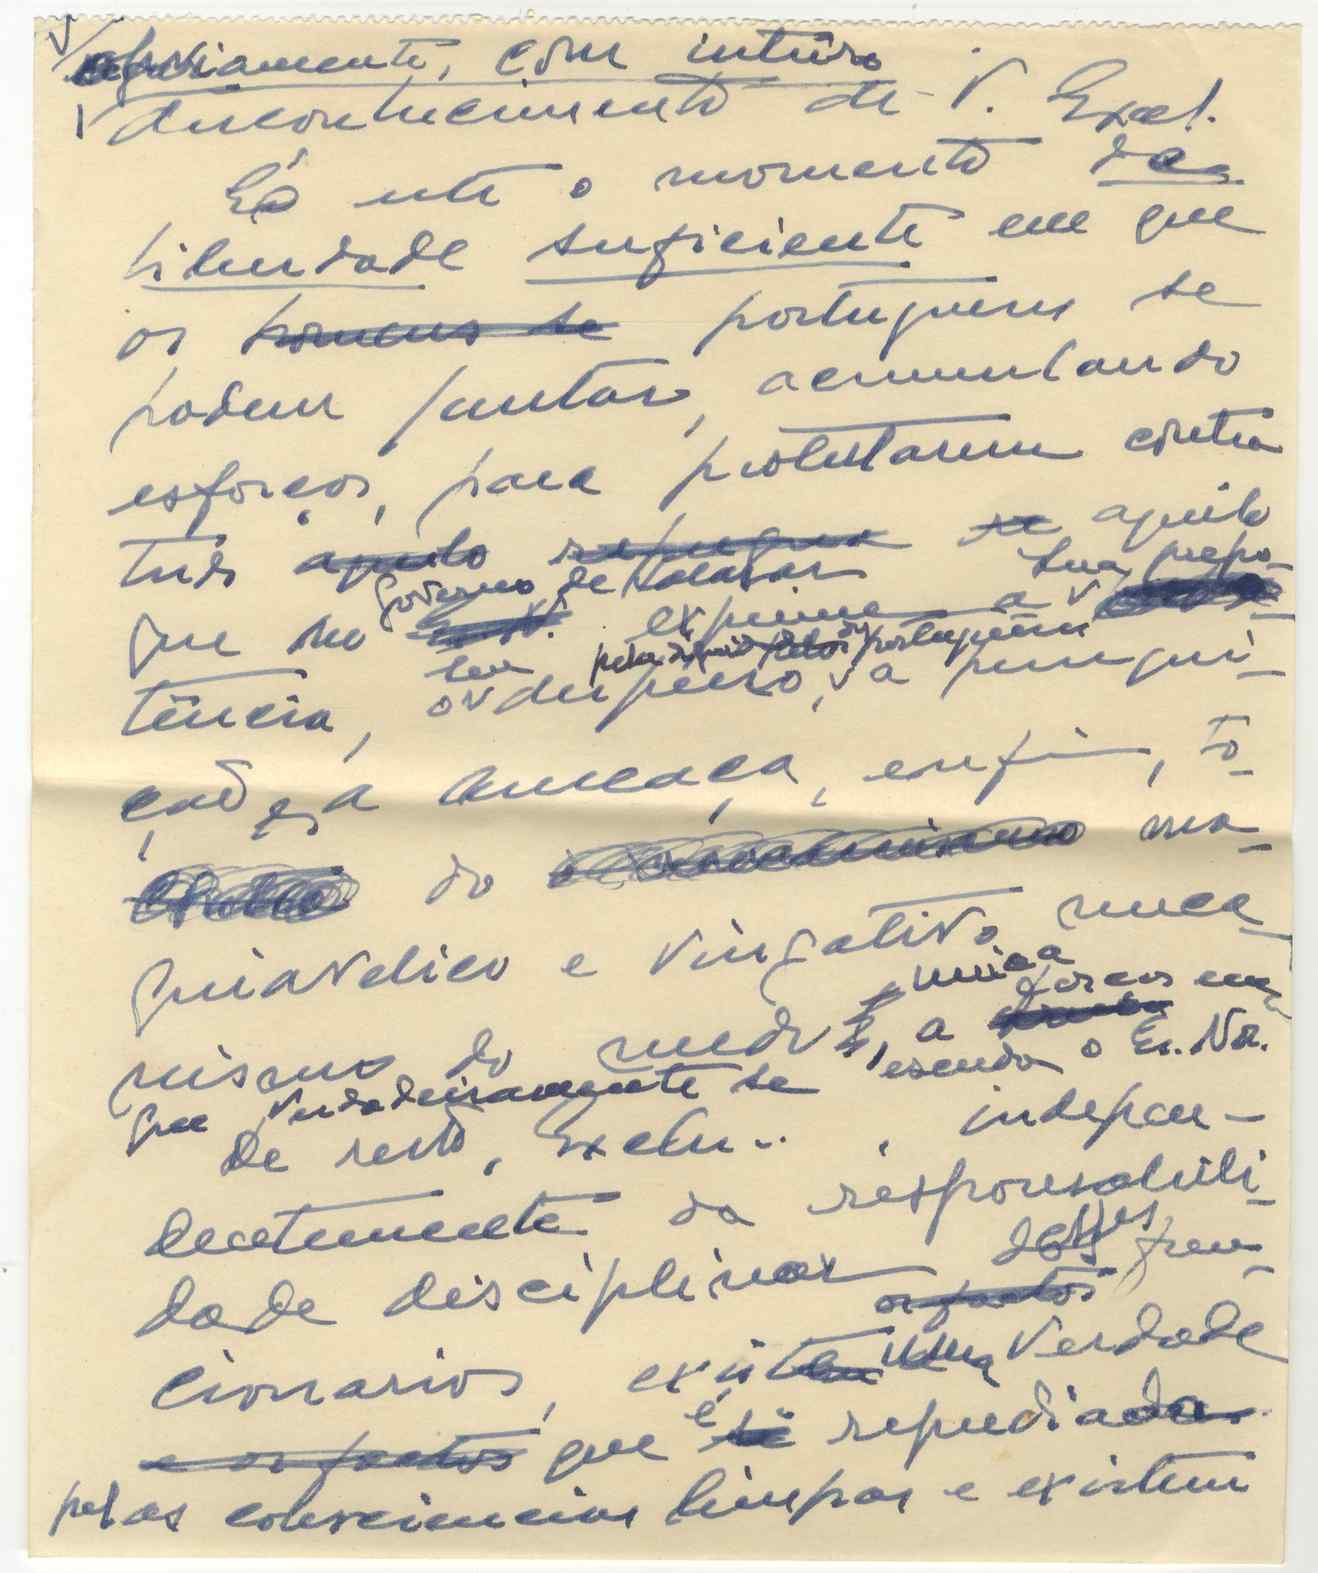 àbviamente, com inteiro
desconhecimento de V. Excl.
É este o momento da
liberdade suficiente em que
os homens se portugueses se
podem juntar, acumulando
esforços, para protestarem contra
tudo aquilo repugna se aquilo
que no Governo de Salazar exprime a sua prepo-
tência, o seu desprezo pela dignidade dos portugueses, a persegui-
ção e a ameaça, enfim, to-
do o ma-
quiavelico e vingativo meca-
nismo do medo, a unica forca em
que verdadeiramente se escuda o Es. No.
De resto, Exclm.. , indepen-
dentemente da responsabili-
dade disciplinar desses fun-
cionarios, existe uma verdade os factos
e os factos que é repudiada
pelas consciencias limpas e existem